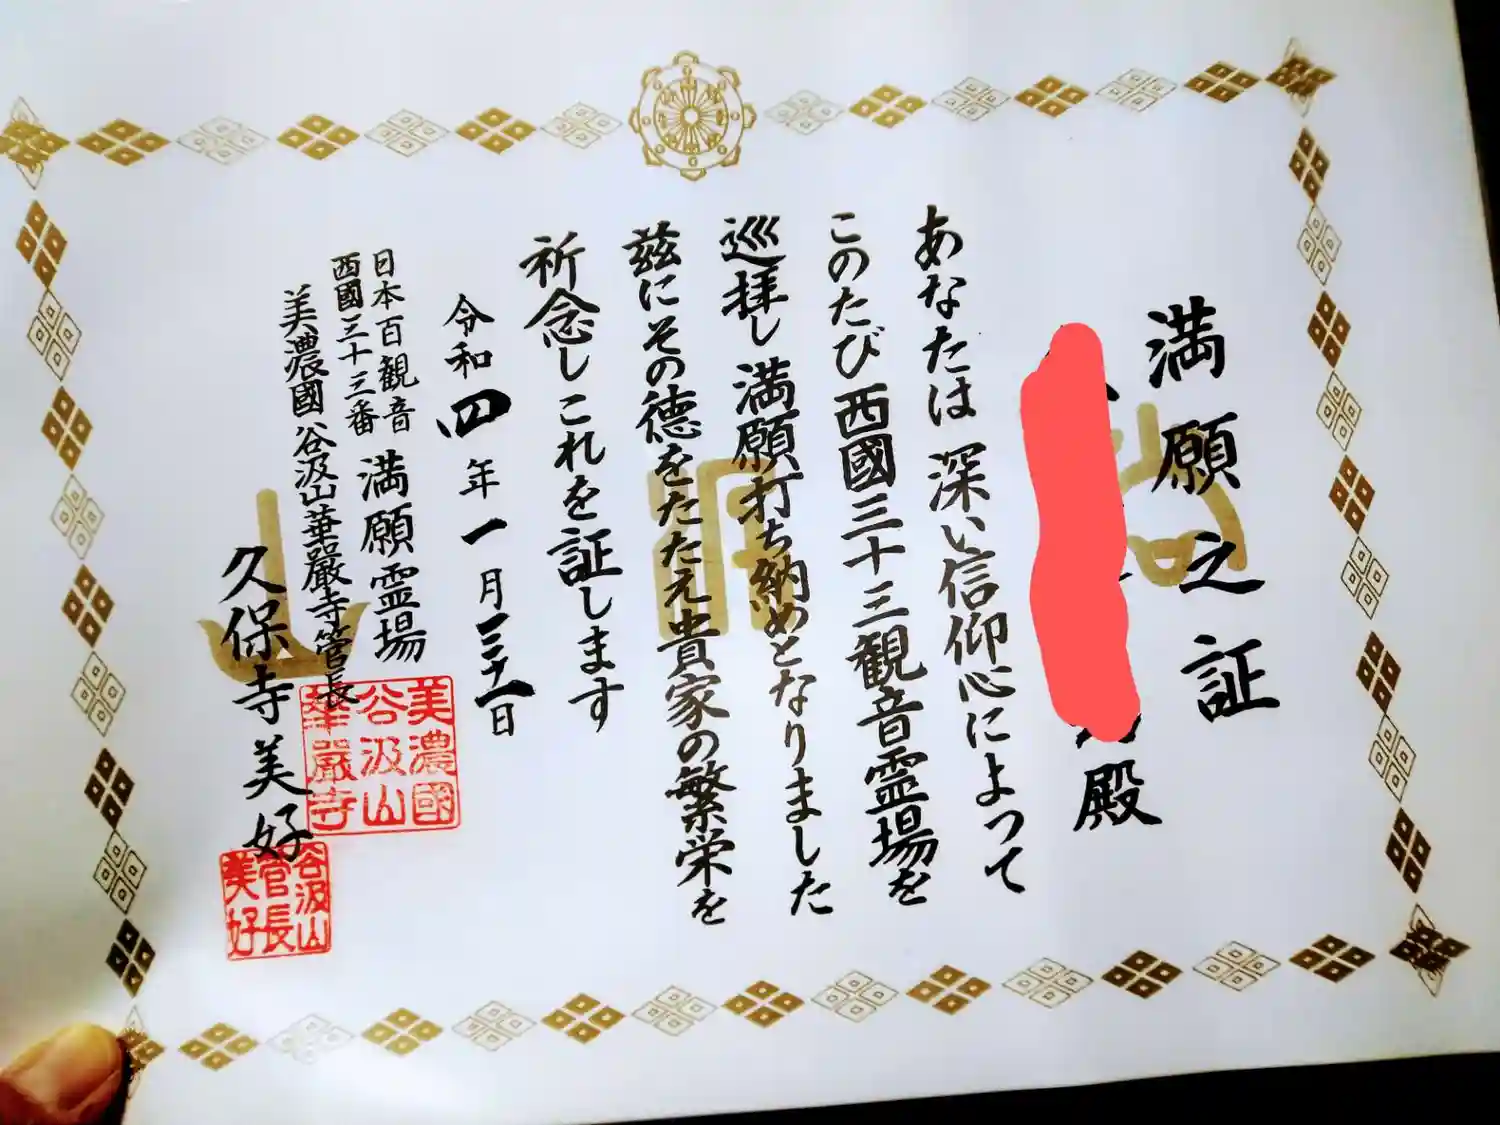 満願之証
殿
あなたは深い信仰心によって
このたび西國三十三観音霊場を
巡拝し満願打ち納めとなりました
茲にその徳をたたえ貴家の繁栄を
祈念しこれを証します
令和四年一月三十一日
日本百観音
西國三十三番
満願霊場
美濃國谷汲山華嚴寺管長
久保寺美好
美濃國
谷汲山
華嚴寺
谷汲山
管長
美好